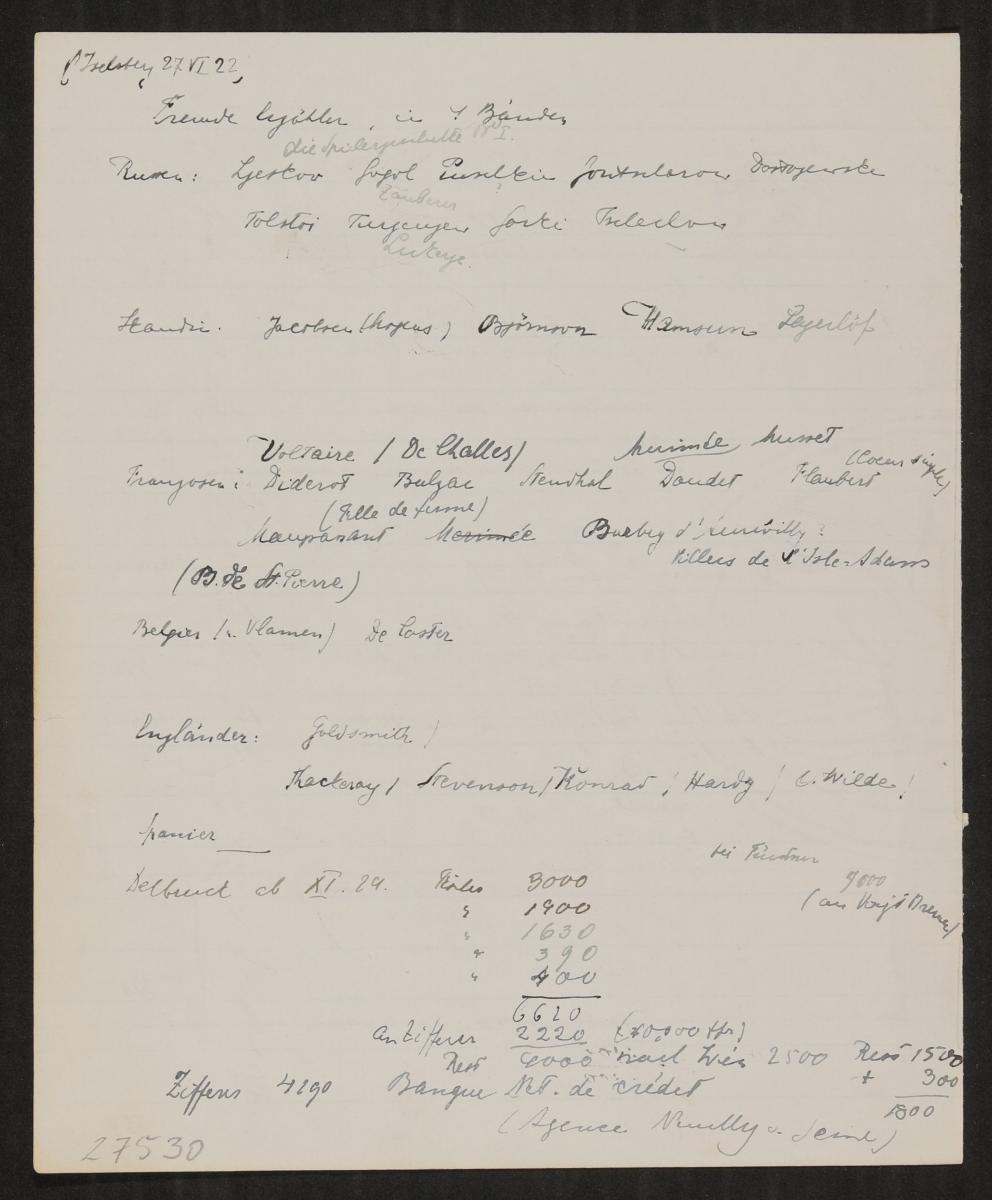 27 VI 22
Fremde Erzähler, in 4 Bänden
Bd I.
Russen: Ljeskov Gogol Puschkin Gontscharow Dostojewski
Zauberer ?
Tolstoi Turgenjew Gorki Tschechow
Lukerja
Skandin. Jacobsen (Mogens) Björnson Hamsun Lagerlöf
Voltaire / De Challes / Merimée Musset
Franzosen: Diderot Balzac Stendhal Daudet Flaubert (Coeur simple)
(Fille de ferme)
Maupassant Merimée Barbey d'Aurevilly?
Villiers de l'Isle-Adam
(B. de St. Pierre)
Belgier (u. Vlamen) De Coster
Engländer: Goldsmith /
Thackeray / Stevenson / Konrad / Hardy / O. Wilde /
Spanier
bei
Delbrück ab XI. 3000
1900
" 1630
" 390
" 400
6620
an Zifferer 2220
Rest 2500 Rest 1500
+ 300
Zifferer 4290 Banque Nat. de crédit
1800
(Agence Neuilly s. Seine)
27530